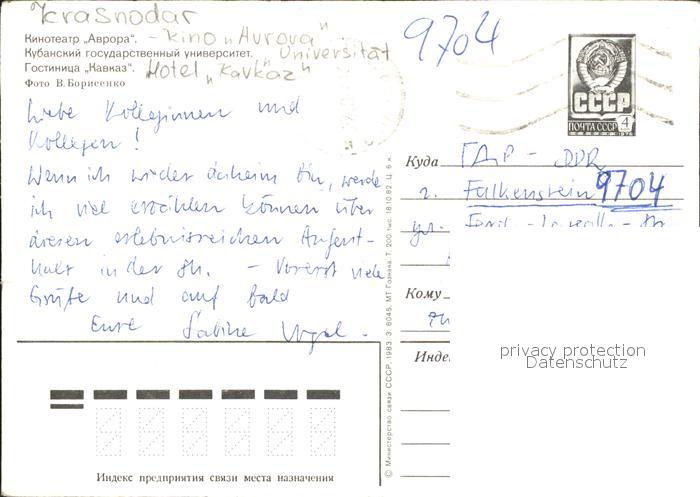 Krasnodar
Кинотеатр „Аврора". - Kino „Aurora"
Кубанский государственный университет. Universität
Гостиница „Кавказ". Hotel „Kavkaz"
Фото В.Борисенко
Liebe Kolleginnen und
Kollegen!
Wenn ich wieder daheim bin, werde
ich viel erzählen können über
diesen erlebnisreichen Aufent-
halt in der SU. - Vorerst viele
Grüße und auf bald
Eure Sabine Vogel.
9704
СССР
ПОЧТА СССР 4
Куда ГДР - DDR
г. Falkenstein 9704
ул.
Кому
Инде
privacy protection
Datenschutz
Индекс предприятия связи места назначения
© Министерство связи СССР. 1983. З. 8045. МТ Гознака. Т. 200 тыс. 18.10.82. Ц. 6 к.